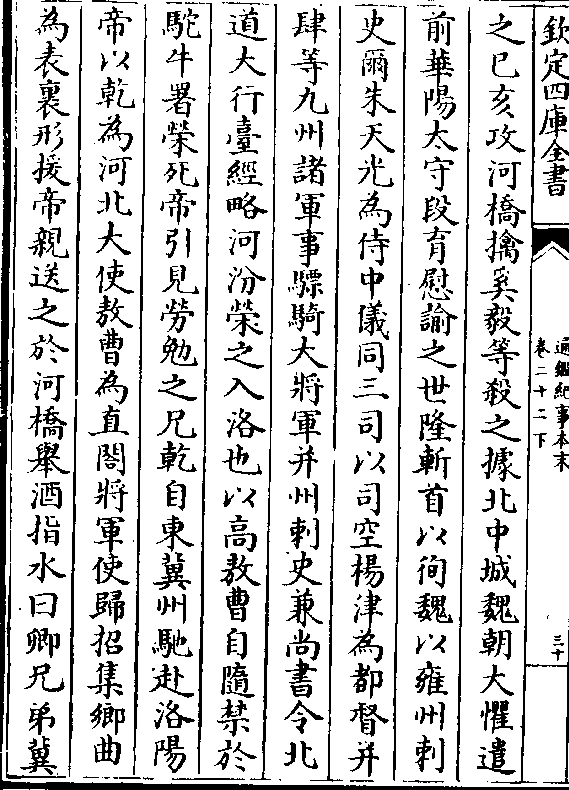 欽定四庫全書
通鑑紀事本末
卷二十二下
三十
之已亥攻河橋擒奚毅等殺之據北中城魏朝大懼遣
前華陽太守段育慰諭之世隆斬首以徇魏以雍州刺
史爾朱天光為侍中儀同三司以司空楊津為都督并
肆等九州諸軍事驃騎大將軍并州刺史兼尚書令北
道大行臺經略河汾榮之入洛也以高敖曹自隨禁於
駝牛署榮死帝引見勞勉之兄乾自東冀州馳赴洛陽
帝以乾為河北大使敖曹為直閤將軍使歸招集鄉曲
為表裏形援帝親送之於河橋舉酒指水曰卿兄弟冀